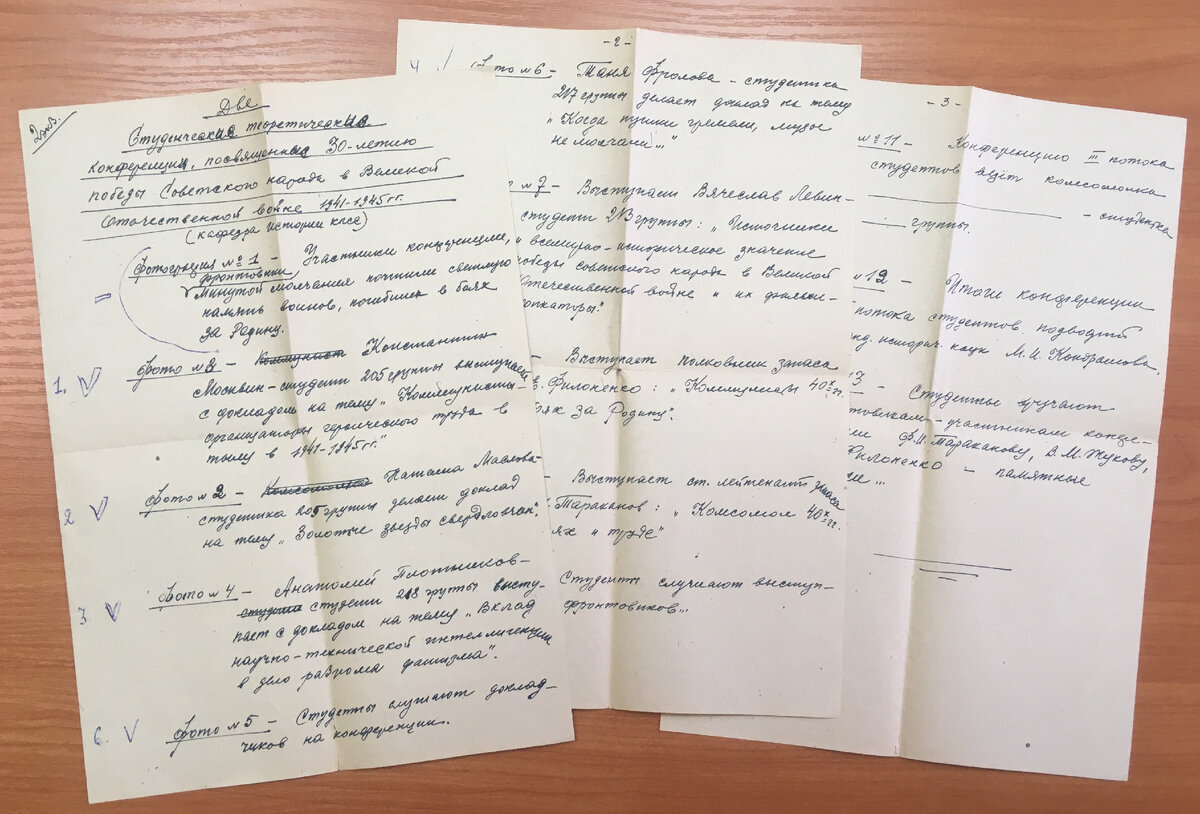 2 экз.
Две
Студенческие теоретические
конференции, посвященные 30-летию
победы Советского народа в Великой
Отечественной войне 1941-1945 гг.
(кафедра истории КПСС)
Фотография № 1 - Участники конференции,
фронтовики
минутой молчания почтили светлую
память воинов, погибших в боях
за Родину.
1. V Фото № 3 - Коммунист Константин
Москвин - студент 205 группы выступает
с докладом на тему „Коммунисты -
организаторы героического труда в
тылу в 1941-1945 гг."
2 V Фото № 2 - Комсомолка Наташа Маслова -
студентка 205 группы делает доклад
на тему „Золотые звезды свердловчан".
3 V Фото № 4 - Анатолий Плотников -
студент студент 218 группы высту-
пает с докладом на тему „Вклад
научно-технической интеллигенции
в дело разгрома фашизма".
6. V Фото № 5 - Студенты слушают доклад-
чиков на конференции.
- 2 -
4 Фото № 6 - Таня Фролова - студентка
217 группы делает доклад на тему
„Когда пушки гремели, музы
не молчали..."
№ 7 - Выступает Вячеслав Левин -
студент 213 группы: „Источники
и всемирно-историческое значение
победы советского народа в Великой
Отечественной войне и их фальси-
фикаторы."
- Выступает полковник запаса
Филоненко: „Коммунисты 40х гг.
боях за Родину".
- Выступает ст. лейтенант запаса
Тараканов: „Комсомол 40х гг.
ях и труде"
Студенты слушают выступ-
фронтовиков...
- 3 -
№ 11 - Конференцию III потока
студентов ведёт комсомолка
- студентка
группы.
12 - Итоги конференции
потока студентов подводит
канд. историч. наук М.И. Кондрашова.
13 - Студенты вручают
фронтовикам - участникам конфе-
Ф.И. Тараканову, В.М. Жукову,
Филоненко - памятные
...